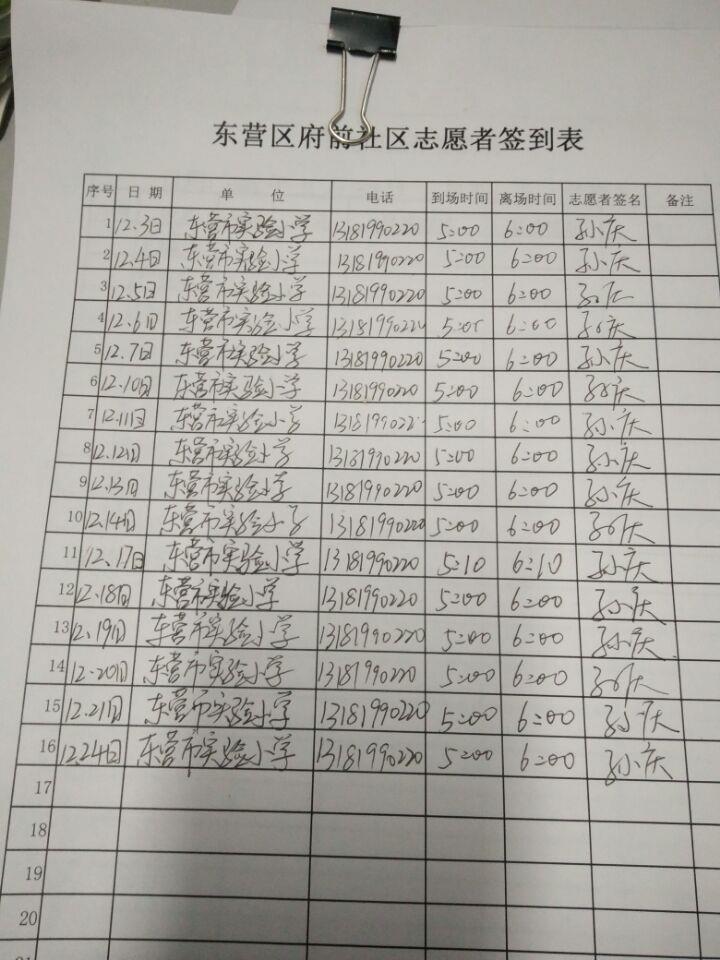 东营区府前社区志愿者签到表
序号 日期 单位 电话 到场时间 离场时间 志愿者签名 备注
1 12.3日 东营市实验小学 13181990220 5:00 6:00 孙庆
2 12.4日 东营市实验小学 13181990220 5:00 6:00 孙庆
3 12.5日 东营市实验小学 13181990220 5:00 6:00 孙庆
4 12.6日 东营市实验小学 13181990220 5:00 6:00 孙庆
5 12.7日 东营市实验小学 13181990220 5:00 6:00 孙庆
6 12.10日 东营市实验小学 13181990220 5:00 6:00 孙庆
7 12.11日 东营市实验小学 13181990220 5:00 6:00 孙庆
8 12.12日 东营市实验小学 13181990220 5:00 6:00 孙庆
9 12.13日 东营市实验小学 13181990220 5:00 6:00 孙庆
10 12.14日 东营市实验小学 13181990220 5:00 6:00 孙庆
11 12.17日 东营市实验小学 13181990220 5:10 6:10 孙庆
12 12.18日 东营市实验小学 13181990220 5:00 6:00 孙庆
13 12.19日 东营市实验小学 13181990220 5:00 6:00 孙庆
14 12.20日 东营市实验小学 13181990220 5:00 6:00 孙庆
15 12.21日 东营市实验小学 13181990220 5:00 6:00 孙庆
16 12.24日 东营市实验小学 13181990220 5:00 6:00 孙庆
17
18
19
20